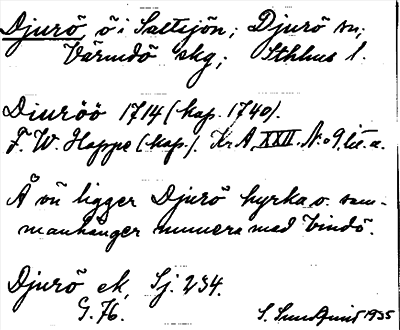 Djurö, ö i Saltsjön; Djurö sn;
Värmdö skg; Sthlms l.
Diuröö 1714 (kop. 1740).
F. W. Hoppe (kop.). Kr A XXII. N:o 9, lit. a.
Å ön ligger Djurö kyrka o. sam-
manhänger numera med Vindö.
Djurö ek, Sj. 234.
G. 76.
S. Sundquist 1935